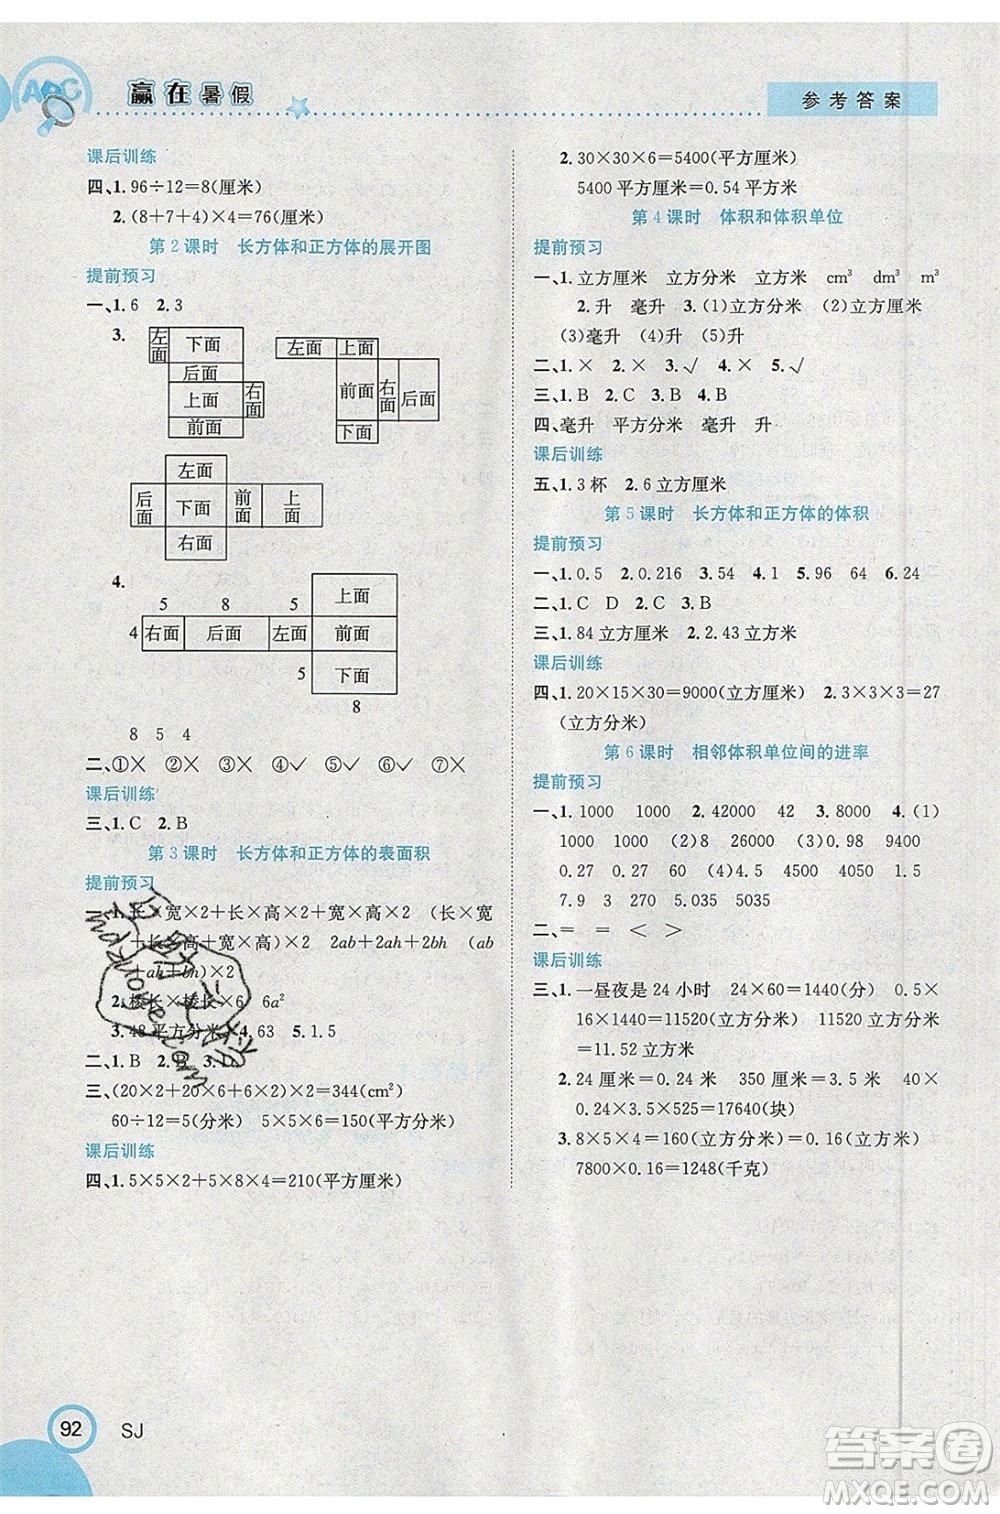 ABC
赢在暑假
参考答案
课后训练
四、1. 96÷12=8(厘米)
2. (8+7+4)×4=76(厘米)
第 2 课时　长方体和正方体的展开图
提前预习
一、1. 6　2. 3
3.
左面　下面
后面
上面　右面
前面
左面　上面
前面　右面　后面
下面
左面
后面　下面　前面　上面
右面
4.
5　8　5　上面
4　右面　后面　左面　前面
5　下面
8
8　5　4
二、①×　②×　③√　④×　⑤×　⑥√　⑦×
课后训练
三、1. C　2. B
第 3 课时　长方体和正方体的表面积
提前预习
一、1. 长×宽×2+长×高×2+宽×高×2　(长×宽
+长×高+宽×高)×2　2ab+2ah+2bh　(ab
+ah+bh)×2
2. 棱长×棱长×6　6a²
3. 48 平方分米　4. 63　5. 1.5
二、1. B　2. B　3.
三、(20×2+20×6+6×2)×2=344(cm²)
60÷12=5(分米)　5×5×6=150(平方分米)
课后训练
四、1. 5×5×2+5×8×4=210(平方厘米)
2. 30×30×6=5400(平方厘米)
5400 平方厘米=0.54 平方米
第 4 课时　体积和体积单位
提前预习
一、1. 立方厘米　立方分米　立方米　cm³　dm³　m³
2. 升　毫升　3. (1)立方分米　(2)立方厘米
(3)毫升　(4)升　(5)升
二、1. ×　2. ×　3. √　4. ×　5. √
三、1. B　2. C　3. B　4. B
四、毫升　平方分米　毫升　升
课后训练
五、1. 3 杯　2. 6 立方厘米
第 5 课时　长方体和正方体的体积
提前预习
一、1. 0.5　2. 0.216　3. 54　4. 1　5. 96　64　6. 24
二、1. C　D　2. A　3. B
三、1. 84 立方厘米　2. 2.43 立方分米
课后训练
四、1. 20×15×30=9000(立方厘米)　2. 3×3×3=27
(立方分米)
第 6 课时　相邻体积单位间的进率
提前预习
一、1. 1000　1000　2. 42000　42　3. 8000　4. (1)
1000　1000　(2)8　26000　(3)0.98　9400
0.87　60　(4)4.5　1500　4050　1.5
7.9　3　5035　5　270　0.19
二、=　=　<　>
课后训练
三、1. 一昼夜是 24 小时　24×60=1440(分)　0.5×
16×1440=11520(立方分米)　11520 立方分米
=11.52 立方米
2. 24 厘米=0.24 米　350 厘米=3.5 米　40×
0.24×3.5×525=17640(块)
3. 8×5×4=160(立方分米)=0.16(立方米)
7800×0.16=1248(千克)
92　SJ
答案圈
MXQE.COM